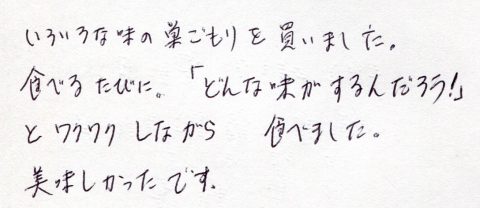 いろいろな味の巣ごもりを買いました。
食べるたびに。「どんな味がするんだろう!」
とワクワクしながら 食べました。
美味しかったです.